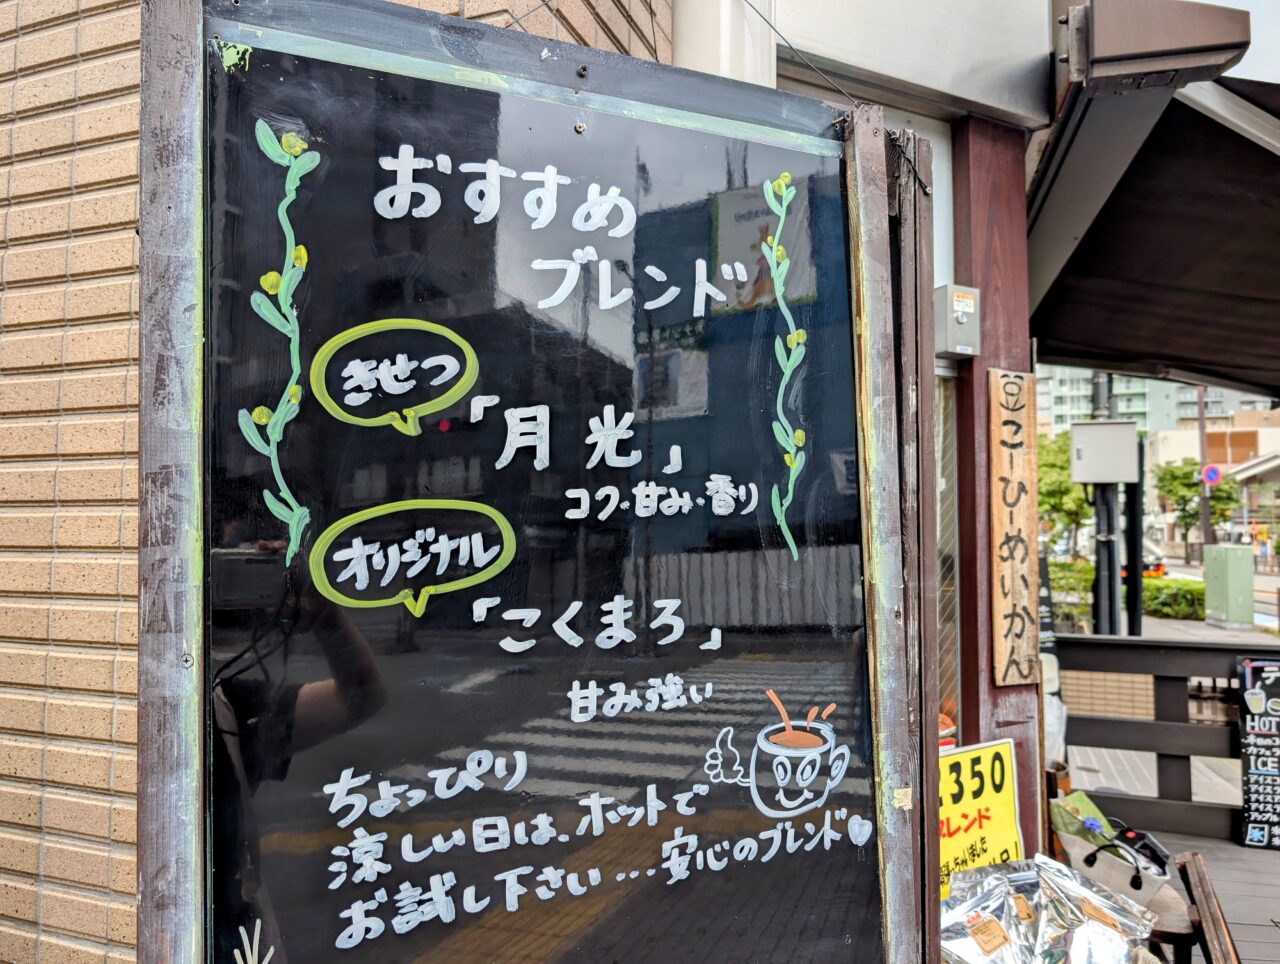 おすすめ
ブレンド
きせつ
「月光」
コク・甘み・香り
オリジナル
「こくまろ」
甘み強い
ちょっぴり
涼しい日は、ホットで
お試し下さい…安心のブレンド
豆こーひーめいかん
350
レンド
HOT
ICE